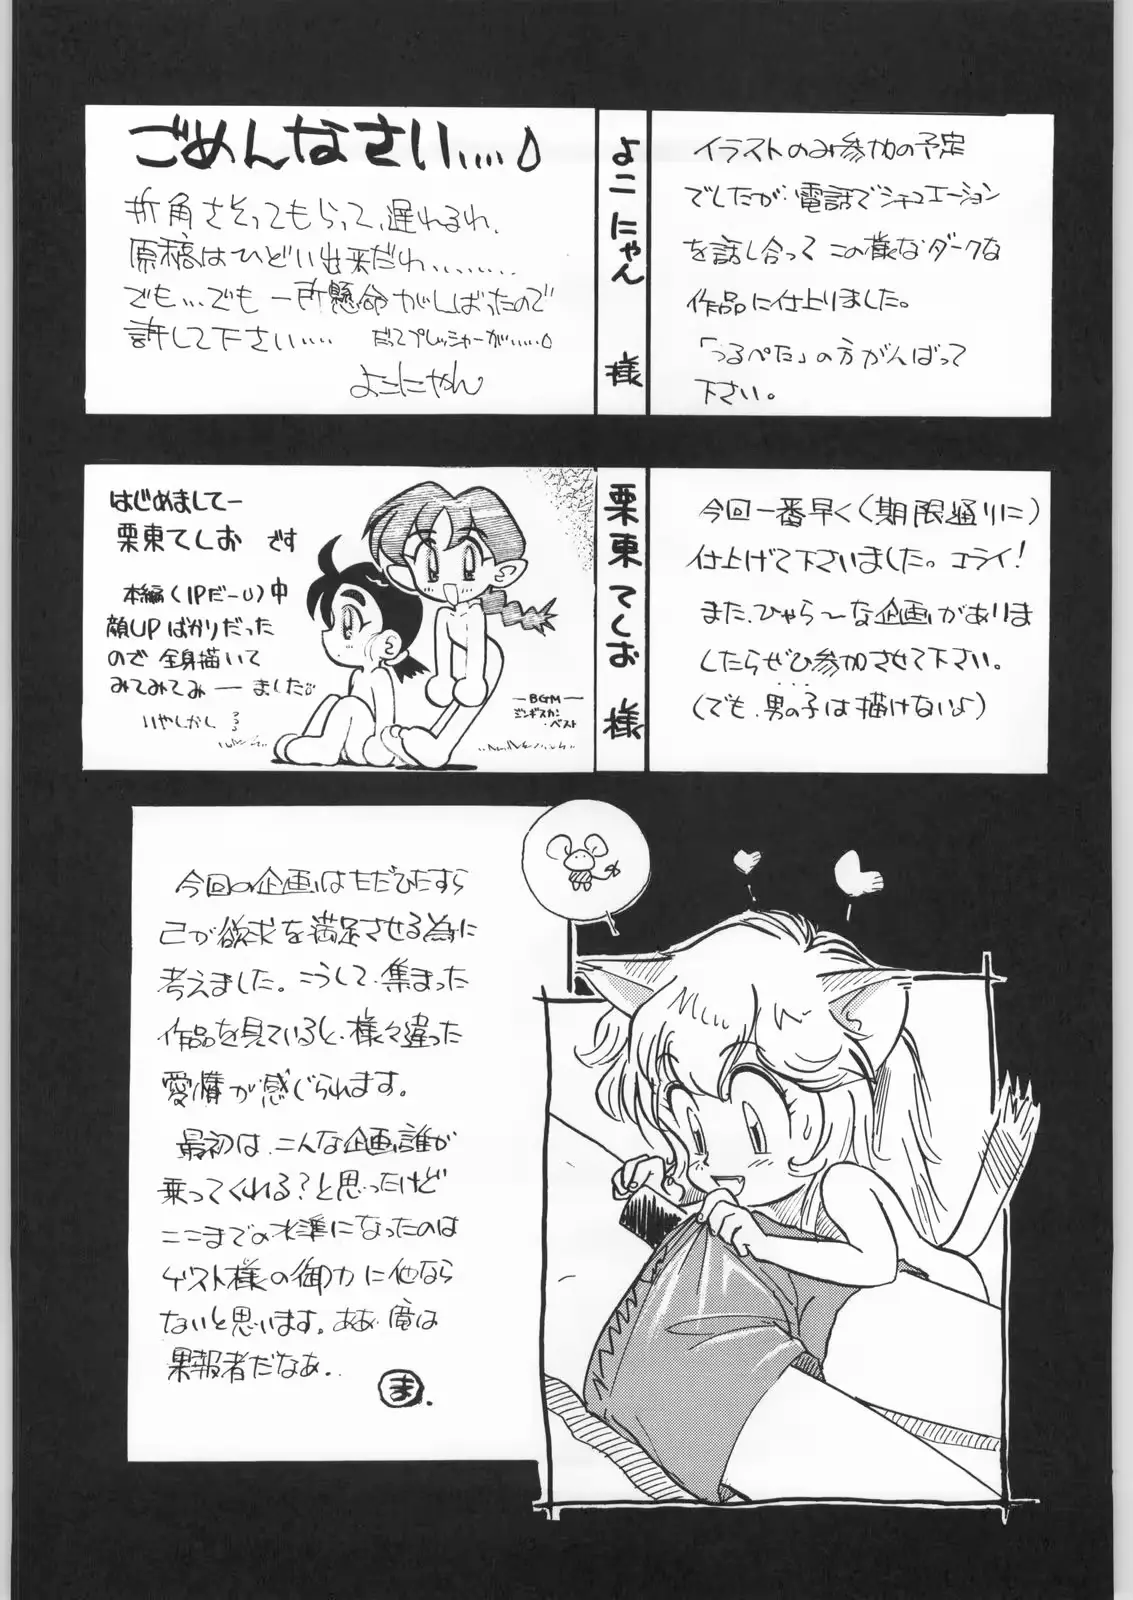 ごめんなさい....♪
折角さそってもらって、遅れるわ、
原稿はひどい出来だわ.........
でも...でも一所懸命がんばったので
許して下さい.....
だってプレッシャーが.....♪
よこにゃん
よこにゃん 様
イラストのみ参加の予定
でしたが、電話でシチュエーション
を話し合って この様なダークな
作品に仕上りました。
「うるぺた」の方がんばって
下さい。
はじめましてー
栗東てしお です
本編(1Pだーし)中
顔UPばかりだった
ので 全身描いて
みてみてみ――ました♪
いやしかし
―BGM―
ジンギスカン
・ベスト
栗東てしお 様
今回一番早く(期限通りに)
仕上げて下さいました。エライ!
また、ひゃら〜な企画がありま
したらぜひ参加させて下さい。
(でも、男の子は描けない♪)
今回の企画はただひたすら
己が欲求を満足させる為に
考えました。こうして、集まった
作品を見ていると、様々違った
愛情が感じられます。
最初は、こんな企画、誰が
乗ってくれる?と思ったけど
ここまでの水準になったのは
ゲスト様の御力に他なら
ないと思います。ああ、俺は
果報者だなぁ..
ま.